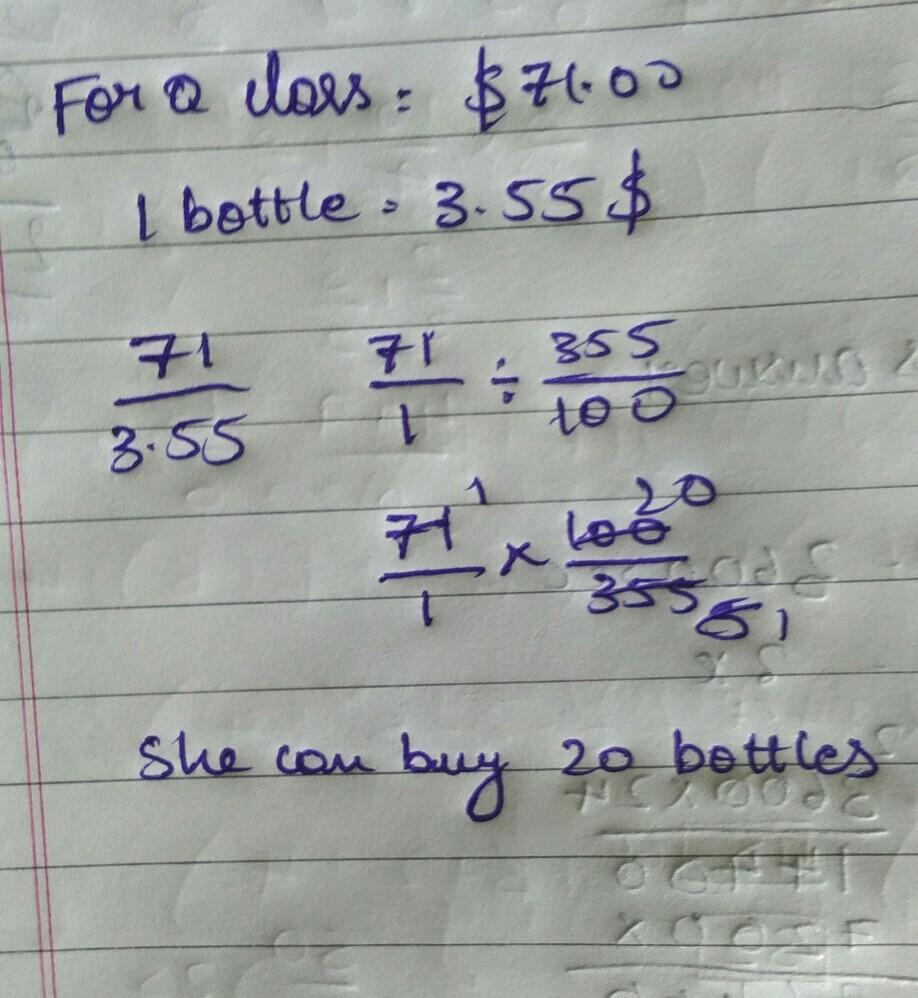 For a class = $71.00
1 bottle = 3.55 $
71/3.55 71/1 ÷ 355/100
71/1 1 × 100/355 20 5 1
She can buy 20 bottles